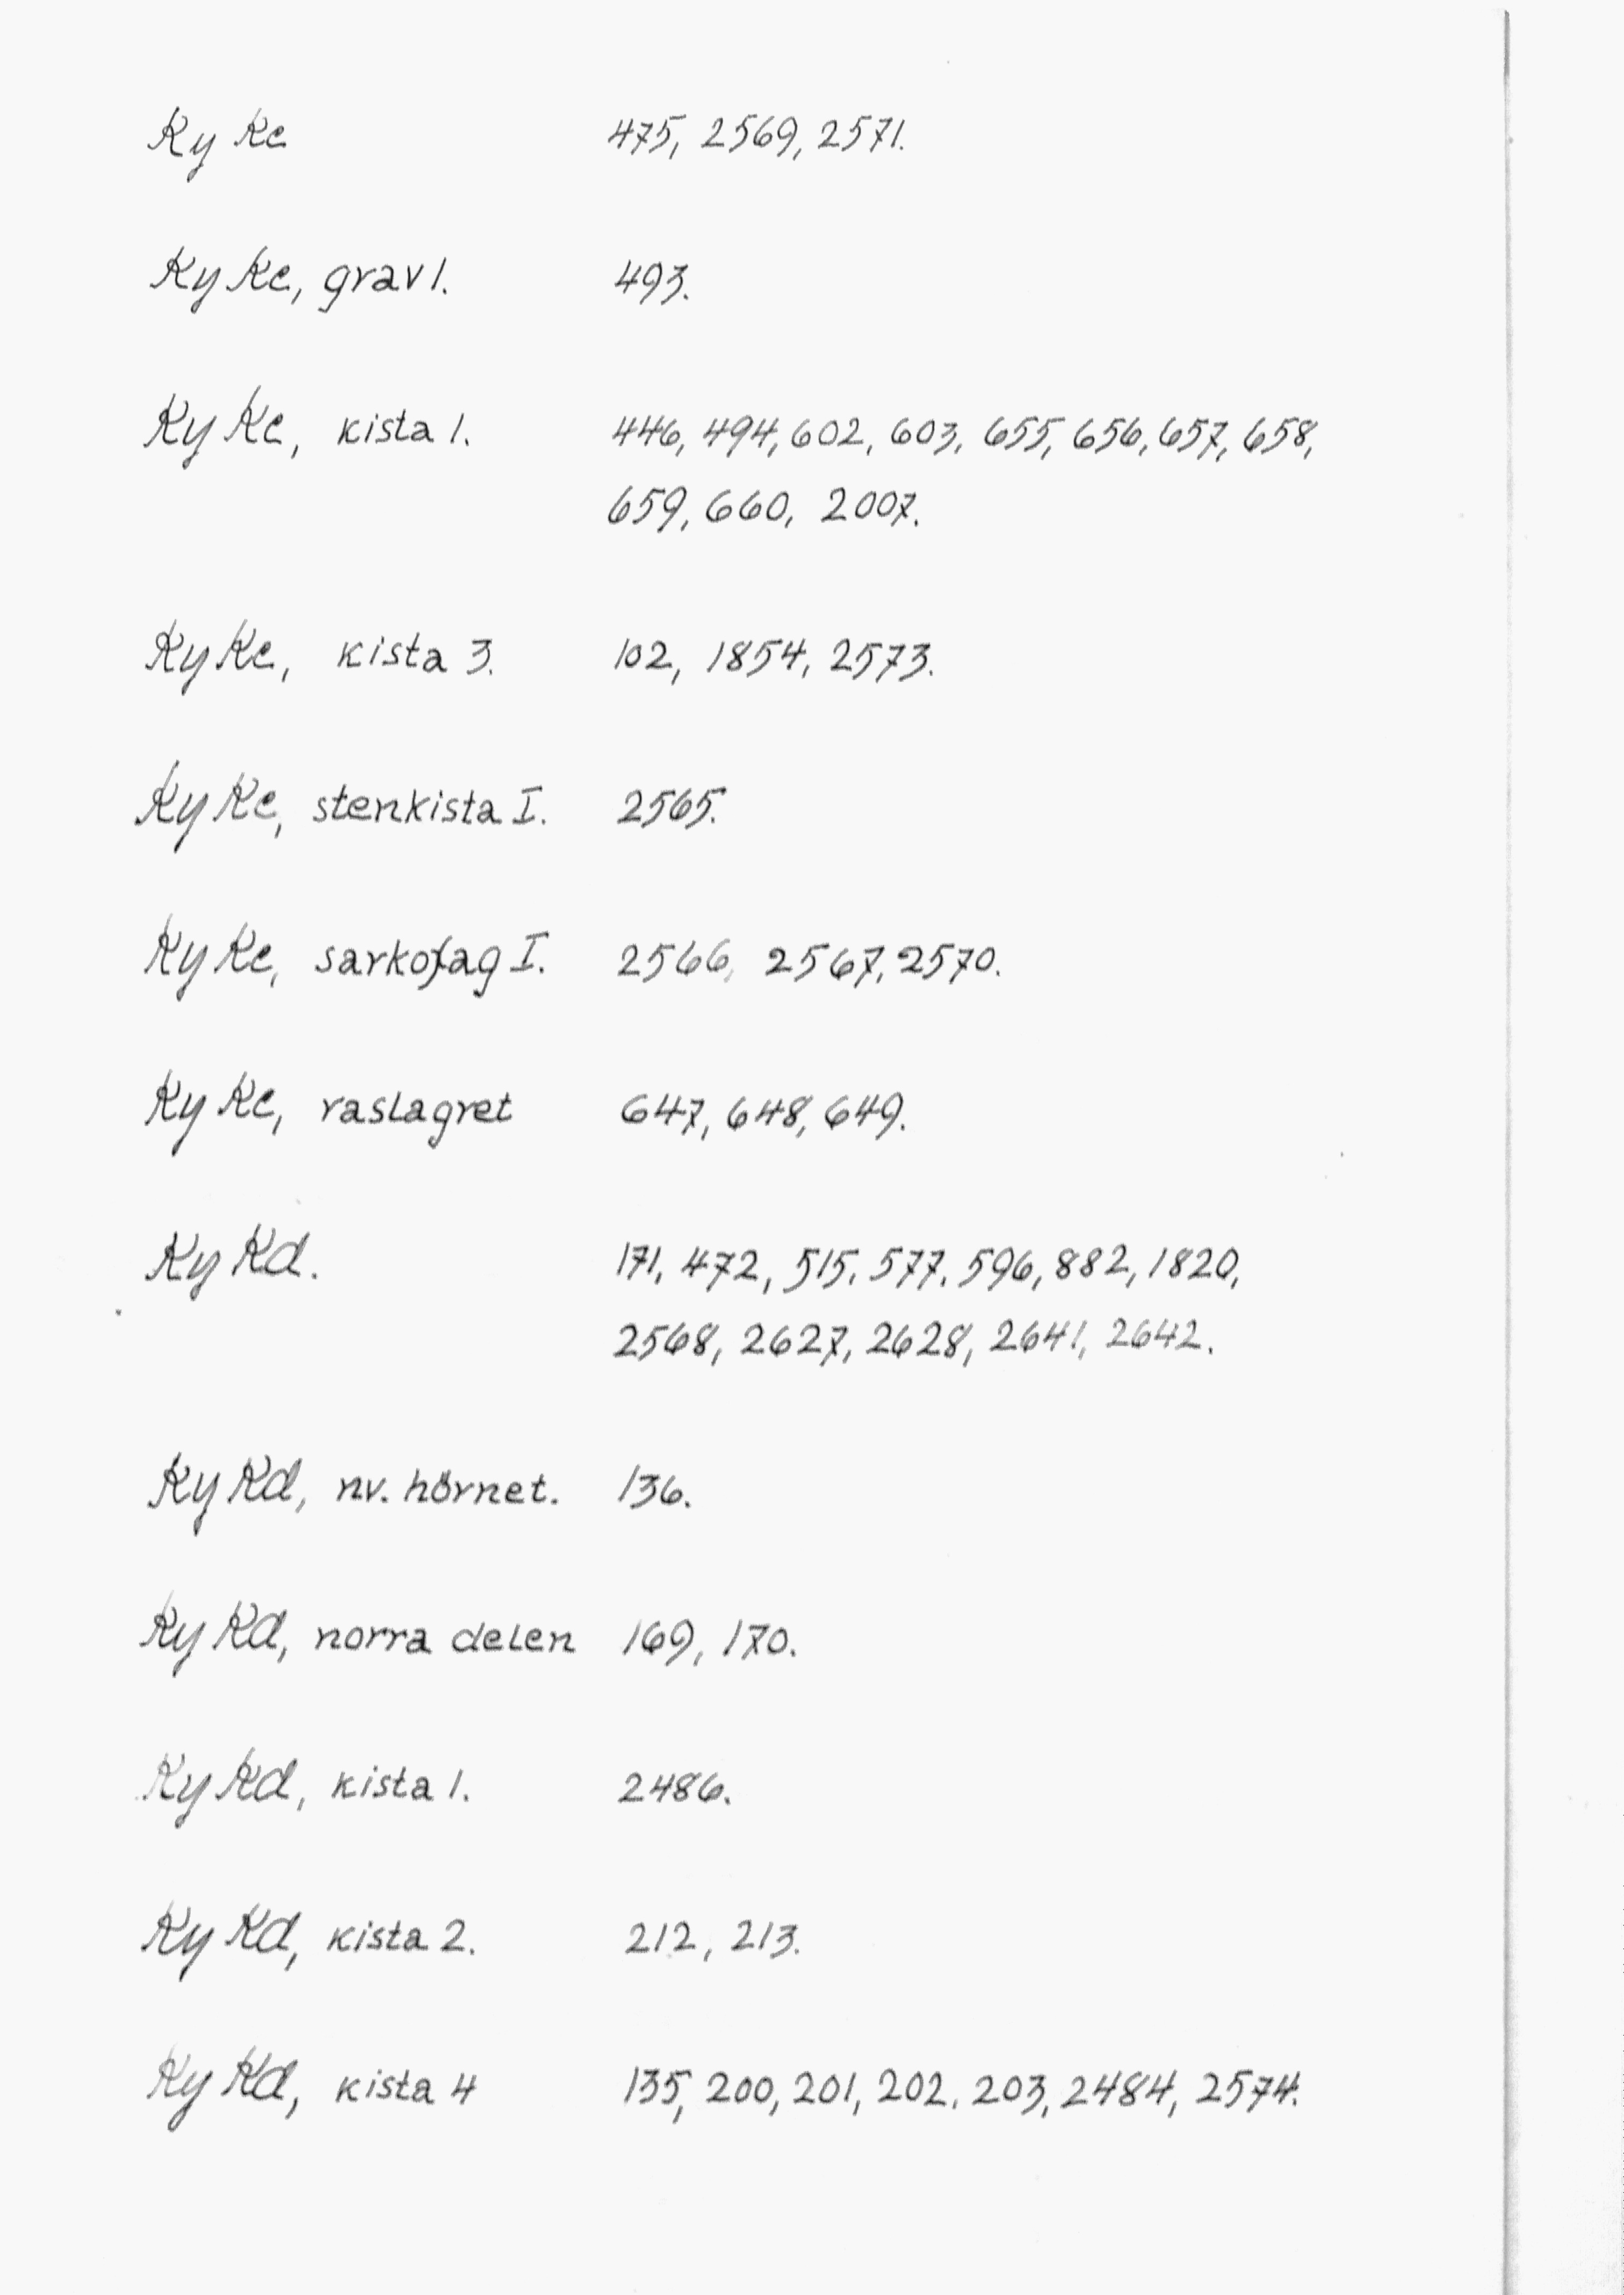 Ky Kc 475, 2569, 2571.
Ky Kc, grav 1. 493.
Ky Kc, kista 1. 446, 494, 602, 603, 655, 656, 657, 658,
659, 660, 2007.
Ky Kc, kista 3. 102, 1854, 2573.
Ky Kc, stenkista I. 2565.
Ky Kc, sarkofag I. 2566, 2567, 2570.
Ky Kc, raslagret 647, 648, 649.
Ky Kd. 171, 472, 515, 577, 596, 882, 1820,
2568, 2627, 2628, 2641, 2642.
Ky Kd, nv. hörnet. 136.
Ky Kd, norra delen 169, 170.
Ky Kd, kista 1. 2486.
Ky Kd, kista 2. 212, 213.
Ky Kd, kista 4 135, 200, 201, 202, 203, 2484, 2574.